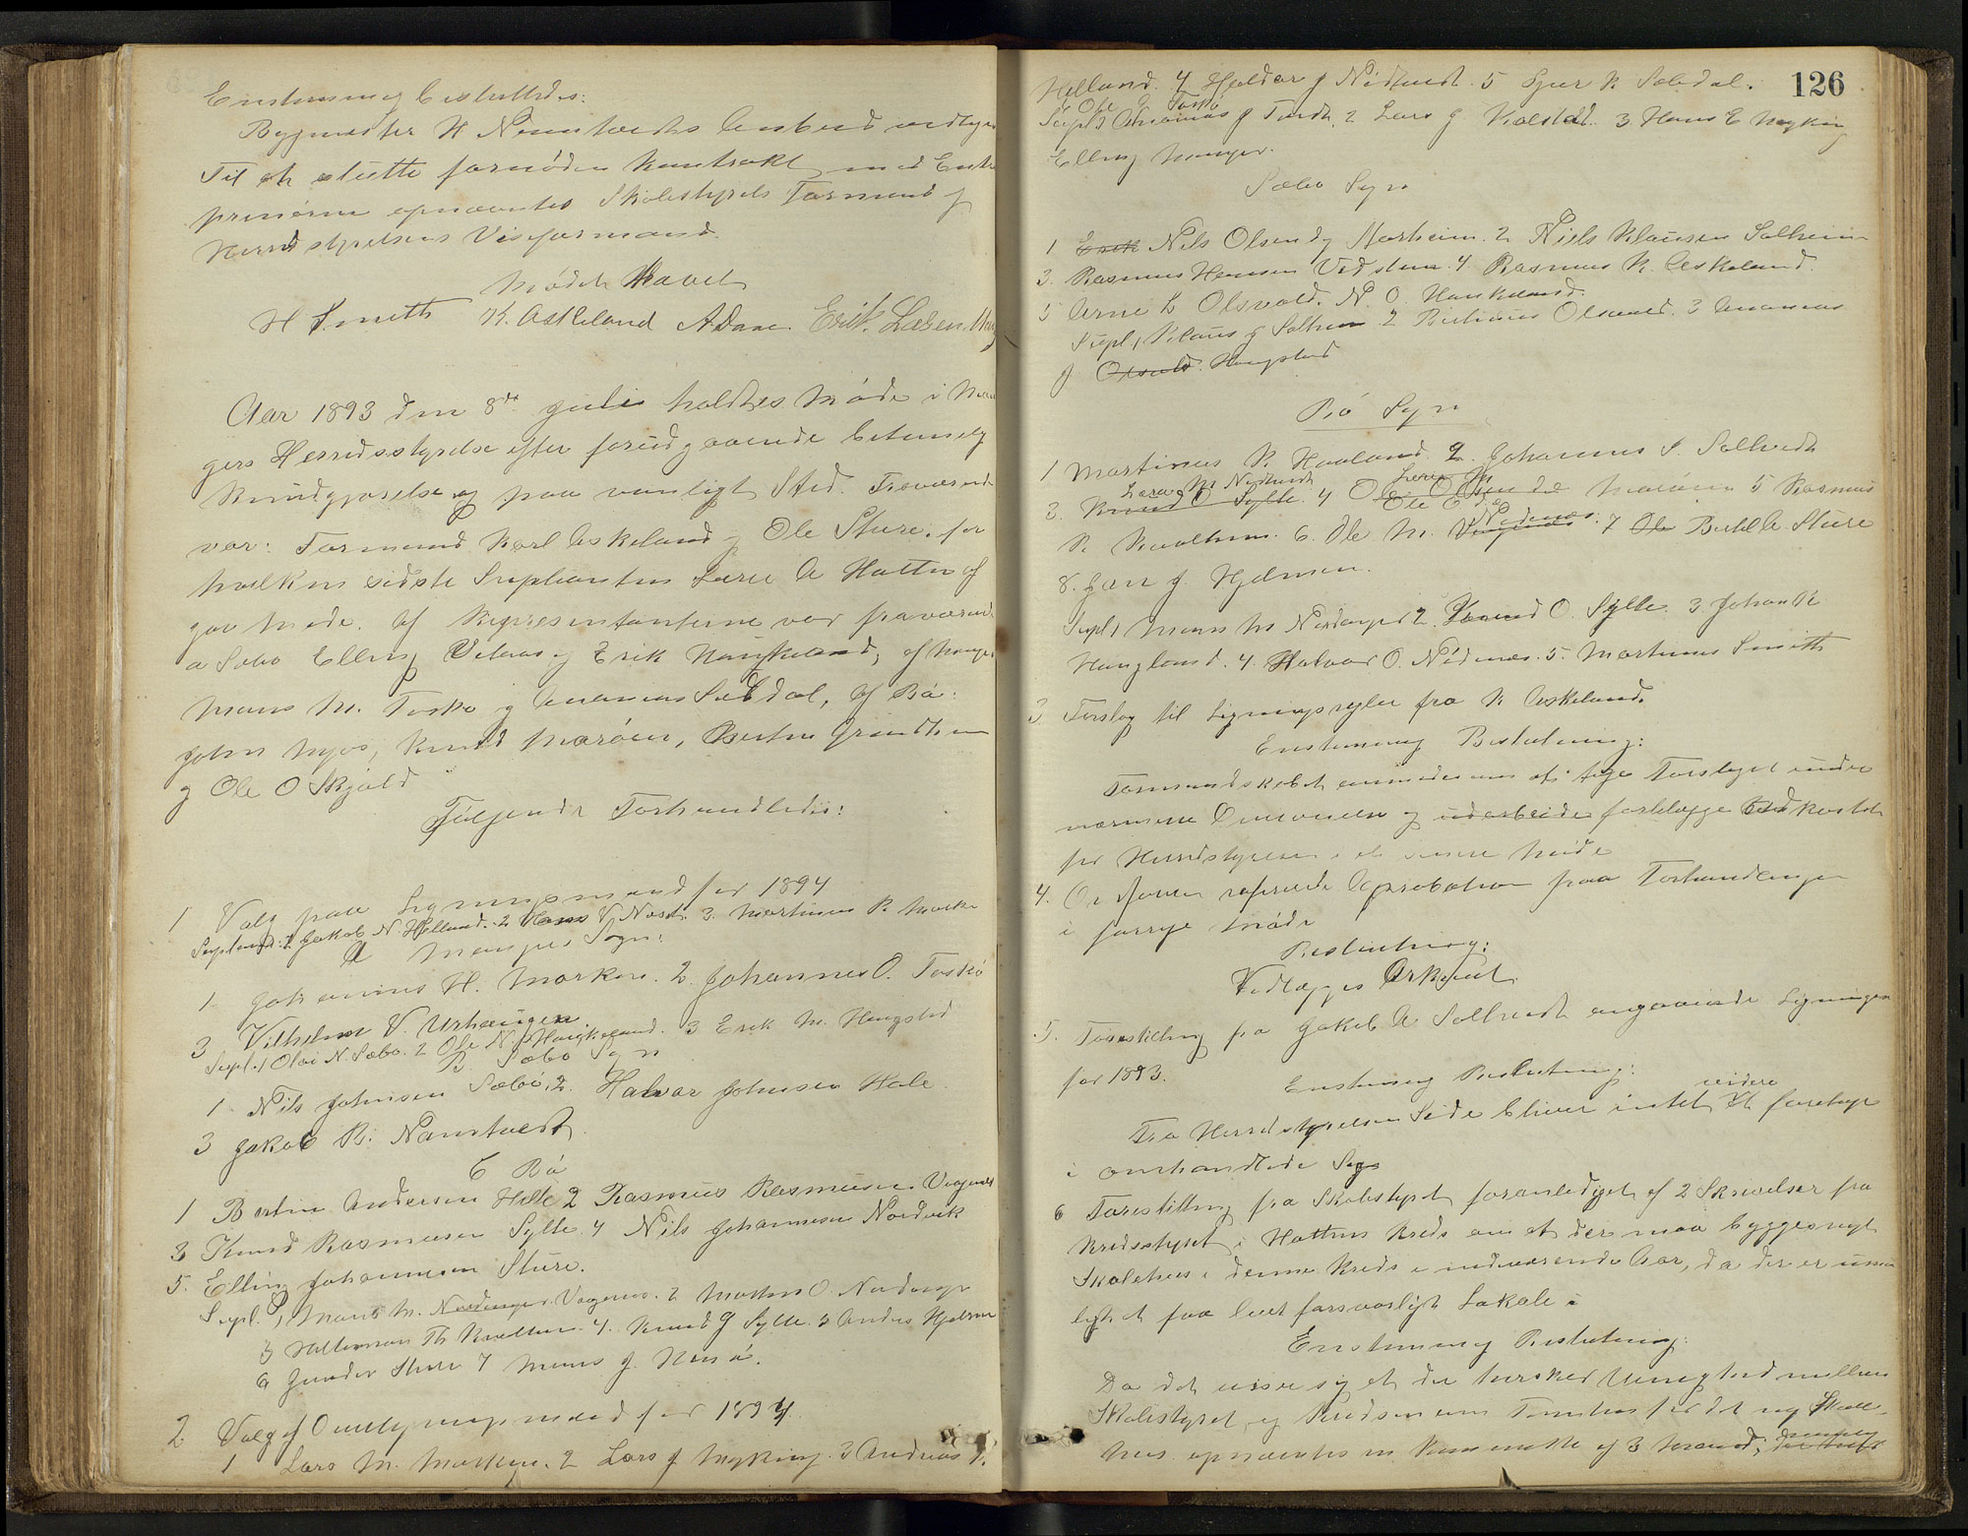 Enstemmig besluttedes:
Bygmester H Namtvedts Anbud vedtages
Til at slutte fornøden kontrakt med Entre
prenøren opnævntes Skolestyrets Formand &
Herredsstyrelsens Viseformand
Mødet Hævet
H Smith K. Askeland A Dane. Erik Larsen
Aar 1893 den 8de juli holdtes Møde i Man
gers Herredsstyrelse efter forudgaaende betimelig
kundgjørelse og paa vanligt Sted. Fraværende
var: Formand Karl Askeland og Ole Sture. for
hvilken sidste Supleanten Lars A Hatten af
gav Møde. Af Repræsentanterne var fraværende
a Sæbø Elling Vetaas og Erik Haugkeland, af Manger
Mons M. Toskø og Ananias Sæbdal, af Bø:
John Myos, Knud Marøen, Bertin Grindheim
og Ole O Skjold
Følgende Forhandledes:
1 Valg paa Ligningsmænd for 1894
Supleant: 1 Jakob N. Helland. 2 Hans V Nøst. 3. Martinus R. Morke
A Mangers Sogn:
1 Johannes H. Morken. 2. Johannes O. Toskø
3 Vilhelm V. Urhaugen
Supl. 1 Olai N. Sæbø. 2 Ole N. Haugkeland. 3 Erik M. Hougstad
B. Sæbø Sogn
1 Nils Johnsen Sæbø, 2. Halvor Johnsen Hole.
3 Jakob R. Namtvedt
C Bø
1 Bertin Andersen Hille 2 Rasmus Rasmussen Vagenes
3 Knud Rasmussen Sylte. 4 Nils Johannesen Nordvik
5. Elling Johannesen Sture.
Supl. 1, Mons M. Nordanger Vagenes. 2 Morten O. Nordanger
3 Th Kvalheim 4. Knud J Sylte. 5 Anders Hjelmen
6 Gunder Sture 7 Mons J.
2 Valg af Overligningsmænd for 1894
1 Lars M. Morken. 2 Lars J Myking. 3 Andreas J.
126
Helland. 4 Haldor J Nidtvedt. 5 Sjur K Sæbdal.
6 Ole O Toskø
Supl 1 Ananias J Tvedt, 2 Lars J Kolstad. 3 Hans E Myking
Elling Manger.
Sæbø Sogn
1 Erik Nils Olsen Norheim. 2 Niels Klausen Solheim
3. Rasmus Hansen Vedstein 4. Rasmus K. Askeland.
5 Arne L Olsvold. N. O. Haukeland.
Supl 1 Klaus J Solheim 2 Bertinius Olsvold. 3 Ananias
J Olsvold Hougstad
Bø Sogn
1 Martinus K. Haaland 2. Johannes S. Soltvedt
Lars M Nidtvedt
3. Knud O Sylte. 4 Ole Marøen 5 Rasmus
R Kvalheim. 6. Ole M. Vagenes Nidenes. 7 Ole Bertel A. Sture
8. Lars J. Hjelmen.
Supl 1 Mons M Nordanger 2. Knud O. Sylte. 3. Johan R
Haugland. 4. Halvor O. Nidenæs. 5. Martinus Smith
3 Forslag til Ligningsregler fra K Askeland.
Enstemmig Beslutning:
Formandskabet anmodes om at tage Forslaget under
nærmere Overveielse og udarbeide forelægge Udkastet
for Herredstyrelsen i et senere Møde
4. Ordføren refererede Aprobation paa Forhandlinger
i forrige Møde
Beslutning:
Vedlægges Arkivet
5. Forestilling fra Jakob A Soltvedt angaaende Ligningen
for 1893.
Enstemmig Beslutning:
Fra Herredstyrelsens Side bliver intet videre at foretage
i omhandlede Sag
6 Forestilling fra Skolestyret foranlediget af 2 Skrivelser fra
Kredsstyret i Hattens Kreds om at der maa bygges nyt
Skolehus i denne Kreds i indeværende Aar, da der er umu
ligt at faa leiet forsvarligt Lokale i
Enstemmig Beslutning:
Da det viser sig at der hersker Uenighed mellem
Skolestyret og Kredsen om Tomten for det nye Skole-
hus opnævntes en Kommite af 3 Mænd,